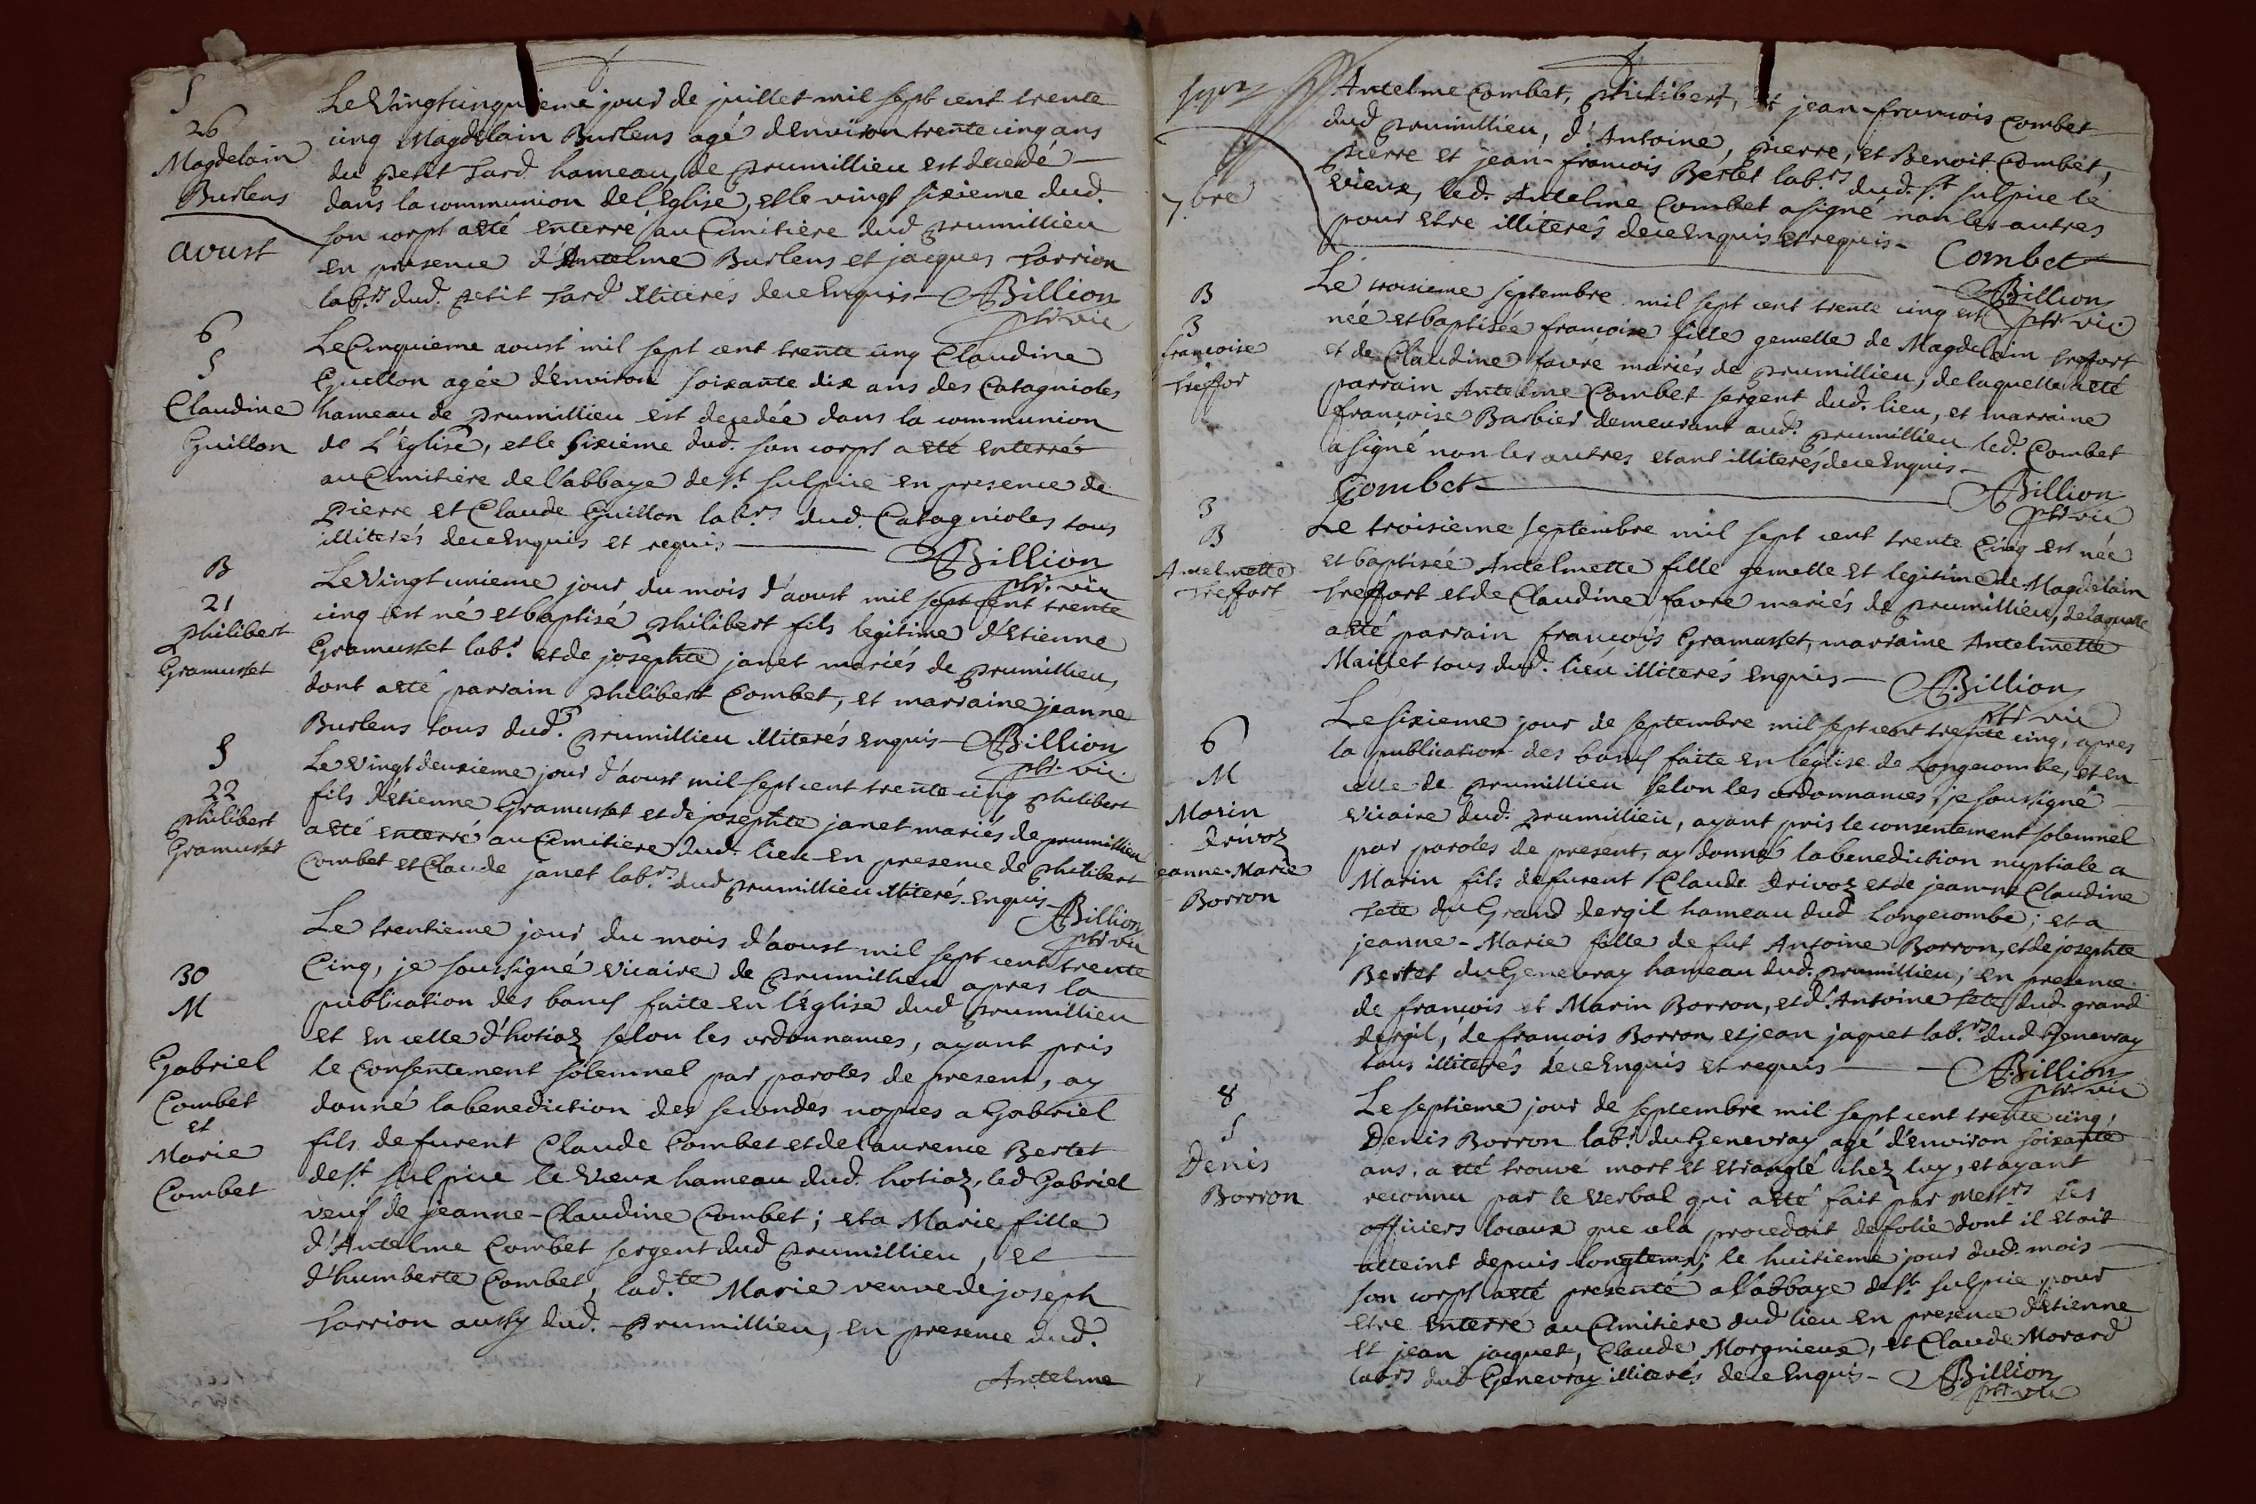 S
26
Magdelain
Burlens
aoust
Le Vingtcinquieme jour de juillet mil sept cent trente
cinq Magdelain Burlens agé d'Environ trente cinq ans
du petit Tard hameau de prumillieu est decedé
dans la communion de l'Eglise, et le vingt sixieme dud.
son corps a eté enterré au Cimitiere dud prumillieu
en presence d'Antelme Burlens et jacques Tarrion
lab.rs dud. petit Tard illiterés de ce Enquis Billion
ptr vic
6
S
Claudine
Guillon
Le Cinquieme aoust mil sept cent trente cinq Claudine
Guillon agée d'environ soixante dix ans des Catagnioles
hameau de prumillieu est decedée dans la communion
de L'Eglise, et le sixieme dud. son corps a eté enterré
au Cimitiere de l'abbaye de st. sulpice en presence de
Pierre et Claude Guillon lab.rs dud. Catagnioles tous
illiterés de ce Enquis et requis Billion
ptr. vic
B
21
Philibert
Gramusset
Le Vingt unieme jour du mois d'aoust mil sept cent trente
cinq est né et baptisé Philibert fils legitime d'Etienne
Gramusset lab.r et de josephte janet mariés de prumillieu,
dont a eté parrain philibert Combet, et marraine jeanne
Burlens tous dud. prumillieu illiterés enquis Billion
ptr. vic.
S
22
philibert
Gramusset
Le Vingt deuxieme jour d'aoust mil sept cent trente cinq philibert
fils d'Etienne Gramusset et de josephte janet mariés de prumillieu
a eté enterré au Cimitiere dud. lieu en presence de philibert
Combet et Claude janet lab.rs dud prumillieu illiterés enquis
Billion
ptr vic
30
M
Gabriel
Combet
et
Marie
Combet
Le trentieme jour du mois d'aoust mil sept cent trente
Cinq, je soussigné vicaire de prumillieu apres la
publication des bancs faite en l'église dud prumillieu
et en celle d'hotiaz selon les ordonnances, ayant pris
le Consentement solemnel par paroles de present, ay
donné la benediction des secondes nopces a Gabriel
fils de furent Claude Combet et de Laurence Bertet
de st. sulpice le Vieux hameau dud. hotiaz, led Gabriel
veuf de jeanne-Claudine Combet; et a Marie fille
d'Antelme Combet sergent dud prumillieu, et
d'humberte Combet, lad.te Marie veuve de joseph
Tarrion aussy dud. prumillieu, en presence dud.
Antelme
7.bre
Antelme Combet, philibert, et jean-francois Combet
dud prumillieu, d'Antoine, pierre, et Benoit Combet,
pierre et jean-francois Bertet lab.rs dud. st sulpice le
vieux, led. Antelme Combet a signé non les autres
pour etre illiterés de ce enquis et requis
Combet
Billion
ptr vic.
B
3
francoise
Treffor
Le troisieme septembre mil sept cent trente cinq est
née et baptisée francoise fille gemelle de Magdelain treffort
et de Claudine favre mariés de prumillieu, de laquelle a eté
parrain Antelme Combet sergent dud. lieu, et marraine
françoise Barbier demeurant aud. prumillieu led. Combet
a signé non les autres etant illiterés de ce Enquis
Combet Billion
ptr vic
3
B
Antelmette
Treffort
Le troisieme septembre mil sept cent trente Cinq est née
et baptisée Antelmette fille gemelle et legitime de Magdelain
treffort et de Claudine favre mariés de prumillieu, de laquelle
a eté parrain françois Gramusset, marraine Antelmette
Maillet tous dud. lieu illiterés enquis Billion
ptr vic
6
M
Marin
Drivoz
jeanne-Marie
Borron
Le sixieme jour de septembre mil sept cent trente cinq, apres
la publication des bancs faite en l'église de Longecombe, et en
celle de prumillieu selon les ordonnances, je soussigné
vicaire dud. prumillieu, ayant pris le consentement solemnel
par paroles de present, ay donné la benediction nuptiale a
Marin fils de furent Claude Drivoz et de jeanne Claudine
Tete du Grand Dergil hameau dud Longecombe; et a
jeanne-Marie fille de fut Antoine Borron, et de josephte
Bertet du Genevray hameau dud. prumillieu; en presence
de françois et Marin Borron, et d'Antoine Tete dud grand
dergil, de francois Borron, et jean jaquet lab.rs dud Genevray
tous illiterés de ce Enquis et requis Billion
ptr vic
8
S
Denis
Borron
Le septieme jour de septembre mil sept cent trente cinq,
Denis Borron lab.r du Genevray agé d'environ soixante
ans, a eté trouvé mort et etranglé chez luy, et ayant
reconnu par le verbal qui a eté fait par Mess.rs les
officiers locaux que cela procedoit de folie dont il etoit
atteint depuis longtems; le huitieme jour dud. mois
son corps a eté presenté a l'abbaye de st. sulpice pour
etre enterré au Cimitiere dud lieu en presence d'Etienne
et jean jacquet, Claude Morgnieux, et Claude Morard
lab.rs dud Genevray illiterés de ce enquis Billion
ptr vic